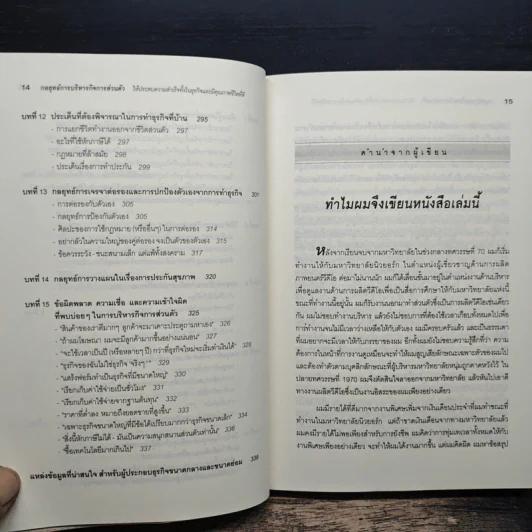 14 กลยุทธ์การบริหารกิจการส่วนตัว ให้ประสบความสำเร็จทั้งในธุรกิจและมีคุณภาพชีวิตที่ดี
บทที่ 12 ประเด็นที่ต้องพิจารณาในการทำธุรกิจที่บ้าน 295
- การแยกชีวิตทำงานออกจากชีวิตส่วนตัว 297
- อะไรที่ใช้หักภาษีได้ 297
- กฎหมายที่ล้าสมัย 298
- ประเด็นเรื่องการทำประกัน 299
บทที่ 13 กลยุทธ์การเจรจาต่อรองและการปกป้องตัวเองจากการทำธุรกิจ 301
- การต่อรองกับตัวเอง 304
- กลยุทธ์การป้องกันตัวเอง 305
- ศิลปะของการใช้กฎหมาย (หรืออื่นๆ) ในการต่อรอง 314
- อย่ากลัวในความใหญ่ของคู่ต่อรอง จงเป็นตัวของตัวเอง 315
- ข้อควรระวัง - ชนะสนามเล็ก แต่แพ้ทั้งสงคราม 317
บทที่ 14 กลยุทธ์การวางแผนในเรื่องการประกันสุขภาพ 320
บทที่ 15 ข้อผิดพลาด ความเชื่อ และความเข้าใจผิด
ที่พบบ่อย ๆ ในการบริหารกิจการส่วนตัว 325
- "สินค้าของเราดีมากๆ ลูกค้าจะมาเคาะประตูถามหาเอง" 326
- "ถ้าผมโฆษณา ผมจะมีลูกค้ามากขึ้นอย่างแน่นอน" 326
- "จะใช้เวลาเป็นปี (หรือหลายๆ ปี) กว่าที่ธุรกิจใหม่จะเริ่มทำเงินได้"
- "ธุรกิจของฉันไม่ใช่ธุรกิจ 'จริงๆ'"
- "เรียกเก็บค่าใช้จ่ายเป็นชั่วโมง"
- "เรียกเก็บค่าใช้จ่ายจากฐานต้นทุน"
- "ราคาที่ต่ำลง หมายถึงยอดขายที่สูงขึ้น"
- "เฉพาะธุรกิจขนาดใหญ่ที่มีข้อได้เปรียบมากกว่าธุรกิจขนาดเล็ก"
- "สิ่งนี้หักภาษีไม่ได้ - มันเป็นความสนุกสนานส่วนตัวเท่านั้น" 337
- "ซื้อเทคโนโลยีมากเกินไป" 337
แหล่งข้อมูลที่น่าสนใจ สำหรับผู้ประกอบธุรกิจขนาดกลางและขนาดย่อม 339
15
คำนำจากผู้เขียน
ทำไมผมจึงเขียนหนังสือเล่มนี้
หลังจากเรียนจบจากมหาวิทยาลัยในช่วงกลางทศวรรษที่ 70 ผมก็เริ่ม
ทำงานให้กับมหาวิทยาลัยนิวยอร์ก ในตำแหน่งผู้เชี่ยวชาญด้านการผลิต
ภาพยนตร์วีดิโอ ต่อมาไม่นานนัก ผมก็ได้เลื่อนขั้นมาอยู่ในตำแหน่งงานด้านบริหาร
เพื่อดูแลงานด้านการผลิตวีดิโอเพื่อเป็นสื่อการศึกษาให้กับมหาวิทยาลัยแห่งนี้
ขณะที่ทำงานนี้อยู่นั้น ผมก็รับงานนอกมาทำส่วนตัวซึ่งเป็นการผลิตวีดิโอเช่นเดียว
กัน ผมไม่ชอบทำงานบริหาร แล้วยังไม่ชอบการที่ต้องใช้เวลาเกือบทั้งหมดไปเพื่อ
การทำงานจนไม่มีเวลาว่างเหลือให้กับตัวเอง ผมมีครอบครัวแล้ว และเป็นธรรมดา
ที่ผมอยากจะมีเวลาให้กับภรรยาของผม อีกทั้งผมยังไม่ชอบความรู้สึกที่ว่า ความ
ต้องการในหน้าที่การงานดูเหมือนจะทำให้ผมสูญเสียลักษณะเฉพาะตัวของผมไป
และต้องทำตัวตามบุคลิกลักษณะที่ผู้บริหารมหาวิทยาลัยหนุ่มถูกคาดหวังไว้ ใน
ปลายทศวรรษที่ 1970 ผมจึงตัดสินใจลาออกจากมหาวิทยาลัย แล้วหันไปเอาดี
ทางงานผลิตวีดิโอซึ่งเป็นงานอิสระของผมเพียงอย่างเดียว
ผมมีรายได้ที่ดีมากจากงานพิเศษเพิ่มจากเงินเดือนประจำที่ผมทำขณะที่
ทำงานในมหาวิทยาลัยนิวยอร์ก แต่ถ้าขาดเงินเดือนจากทางมหาวิทยาลัยแล้ว
ผมคงมีรายได้ไม่พอเพียงสำหรับการยังชีพ ผมคิดว่าการทุ่มเทเวลาทั้งหมดให้กับ
งานพิเศษเพียงอย่างเดียว จะทำให้ผมได้งานมากขึ้น แต่ผมคิดผิด ผมหาข้อสรุป